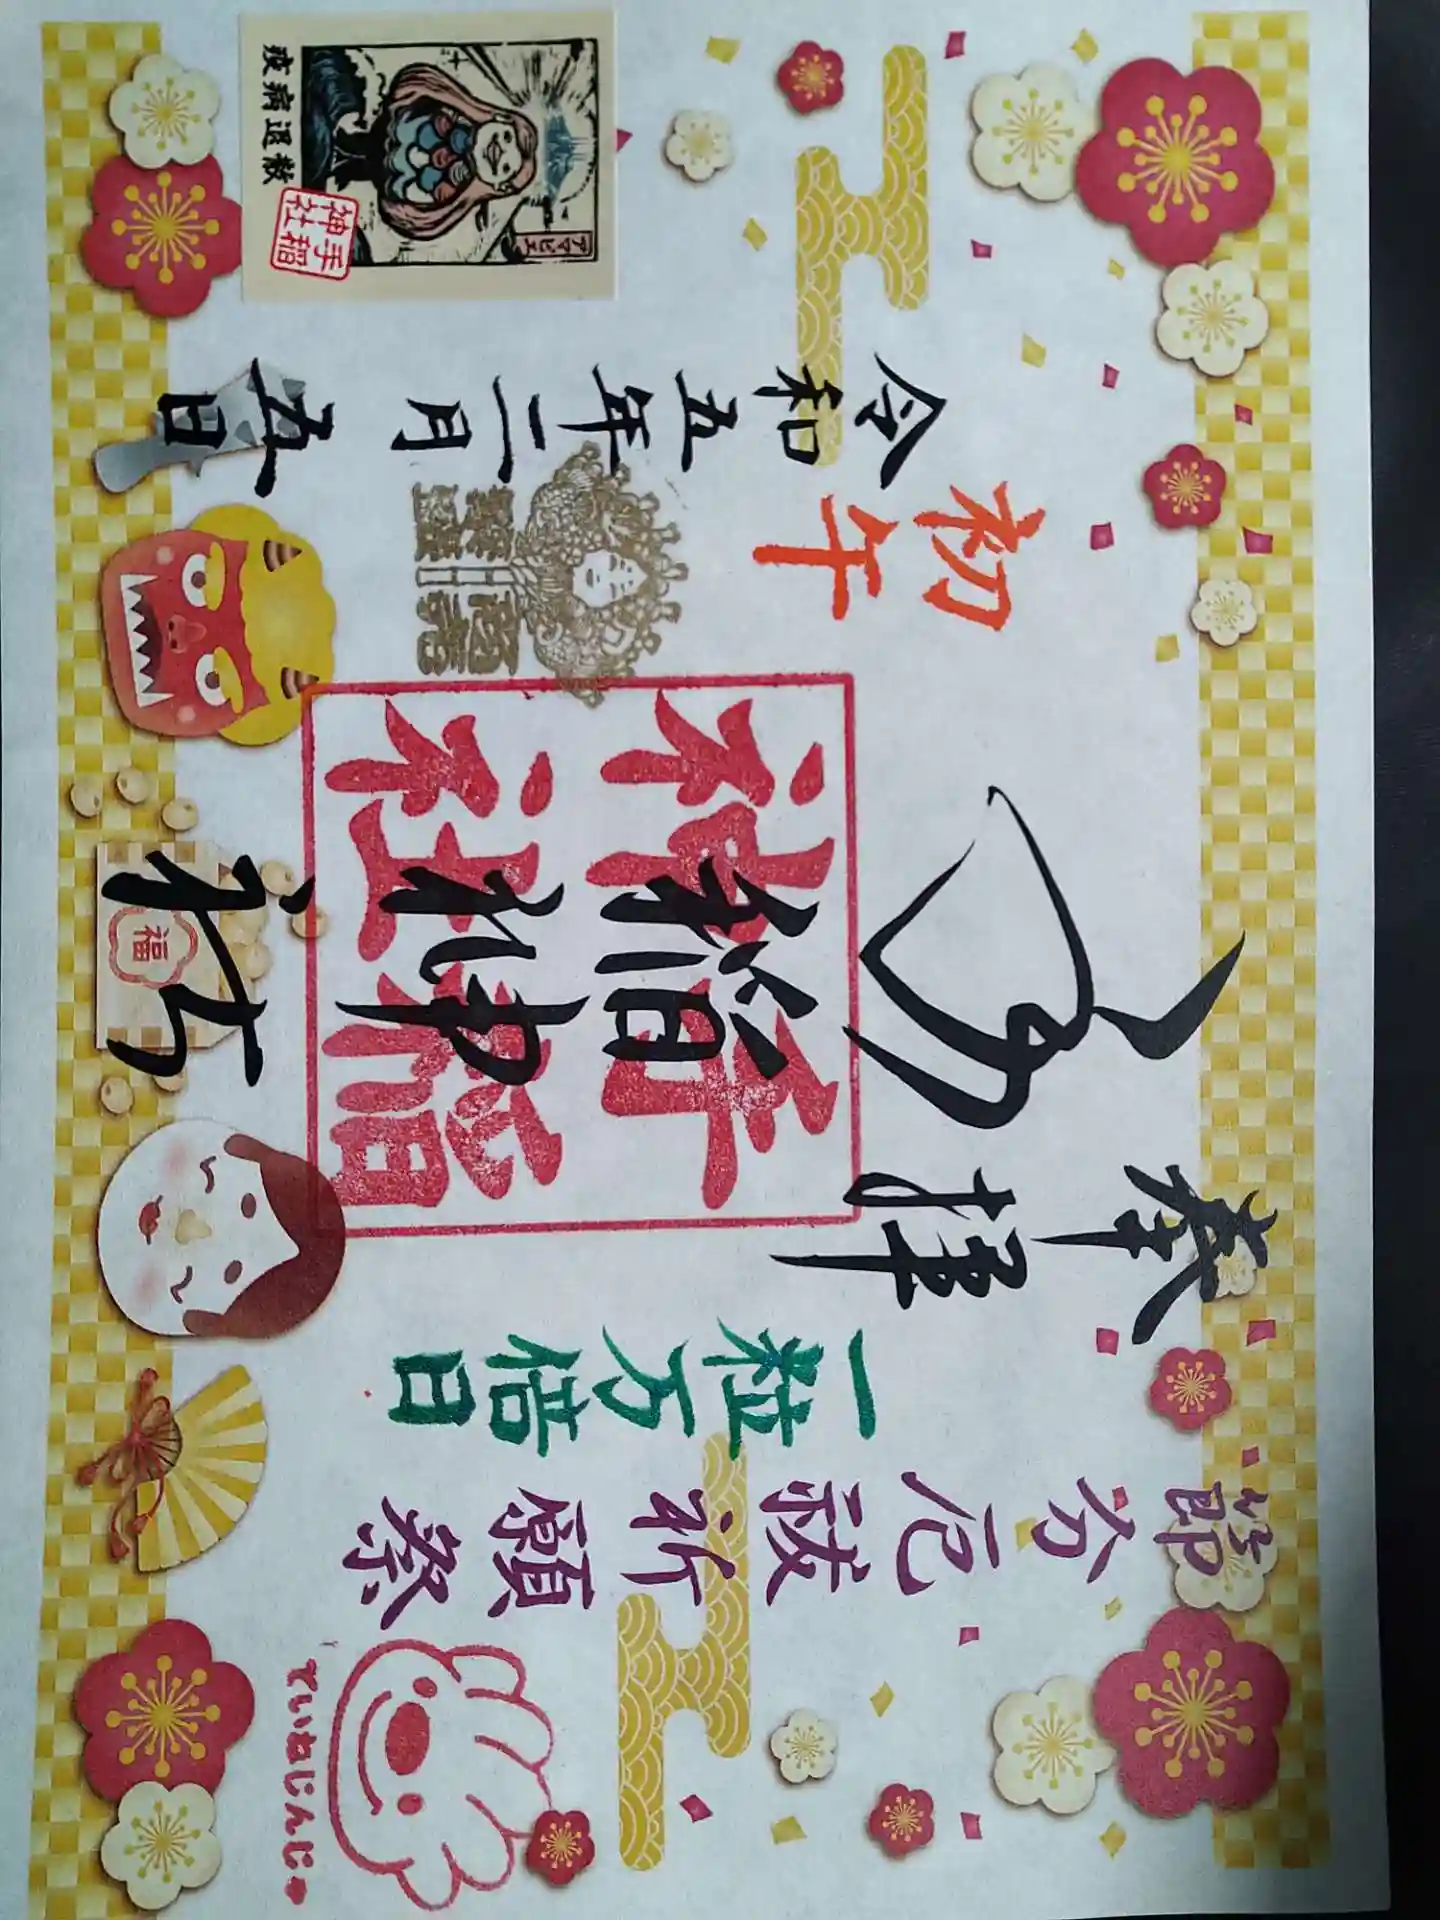 節分厄祓祈願祭
ていねじんじゃ
一粒万倍日
奉拝
手稲神社
手稲
神社
福
初午
令和五年二月五日
アマビエ
疫病退散
手稲
神社